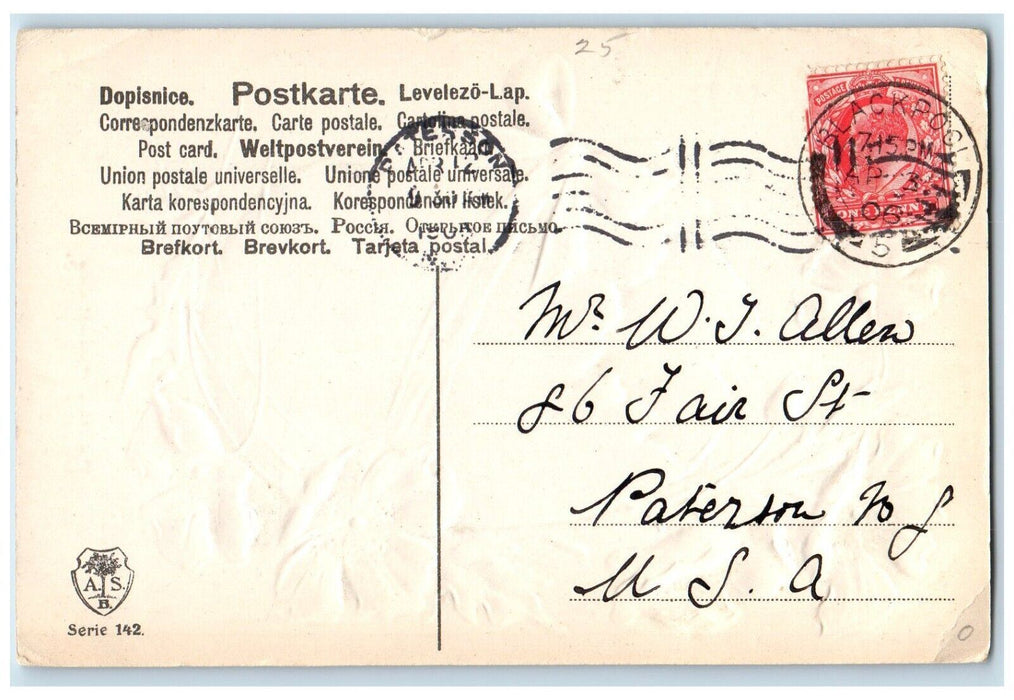 25
Dopisnice. Postkarte. Levelezö-Lap.
Correspondenzkarte. Carte postale. Cartolina postale.
Post card. Weltpostverein. Briefkaart.
Union postale universelle. Unione postale universale.
Karta korespondencyjna. Korespondenční lístek.
Всемірный почтовый союзъ. Россія. Открытое письмо.
Brefkort. Brevkort. Tarjeta postal.
PATERSON
APR 12
190
POSTAGE
ONE PENNY
BLACKPOOL
7.15 PM
AP 3
06
5
Mr. W. J. Allen
86 Fair St
Paterson N J
U S. A
A. S.
B.
Serie 142.
0